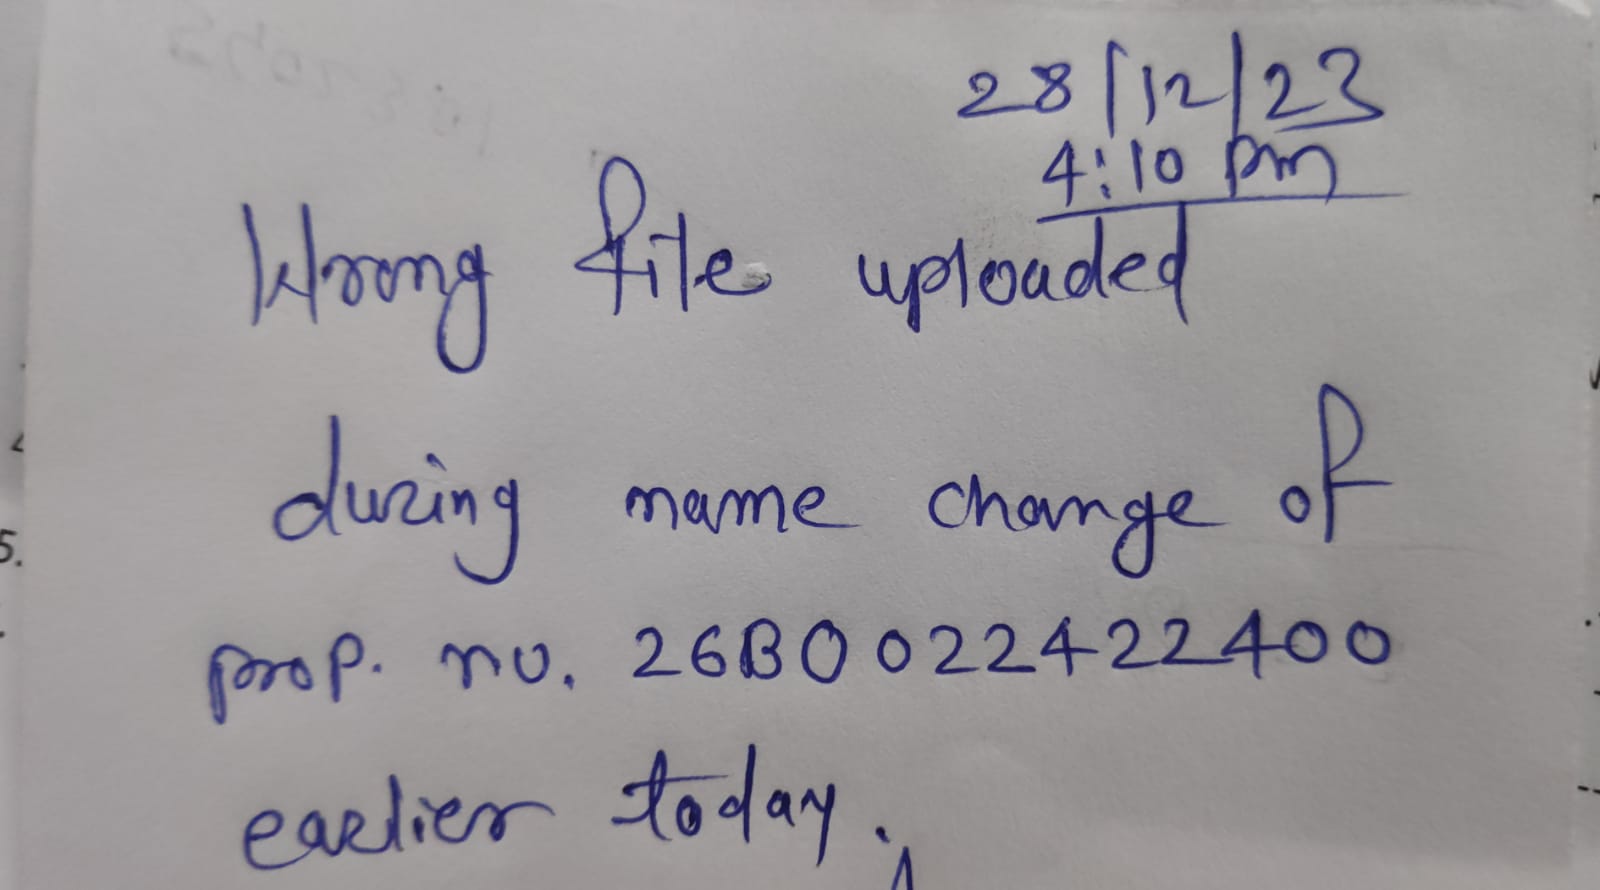 28/12/23
4:10 pm
Wrong file uploaded
during name change of
prop. no. 26B0022422400
earlier today.
5.